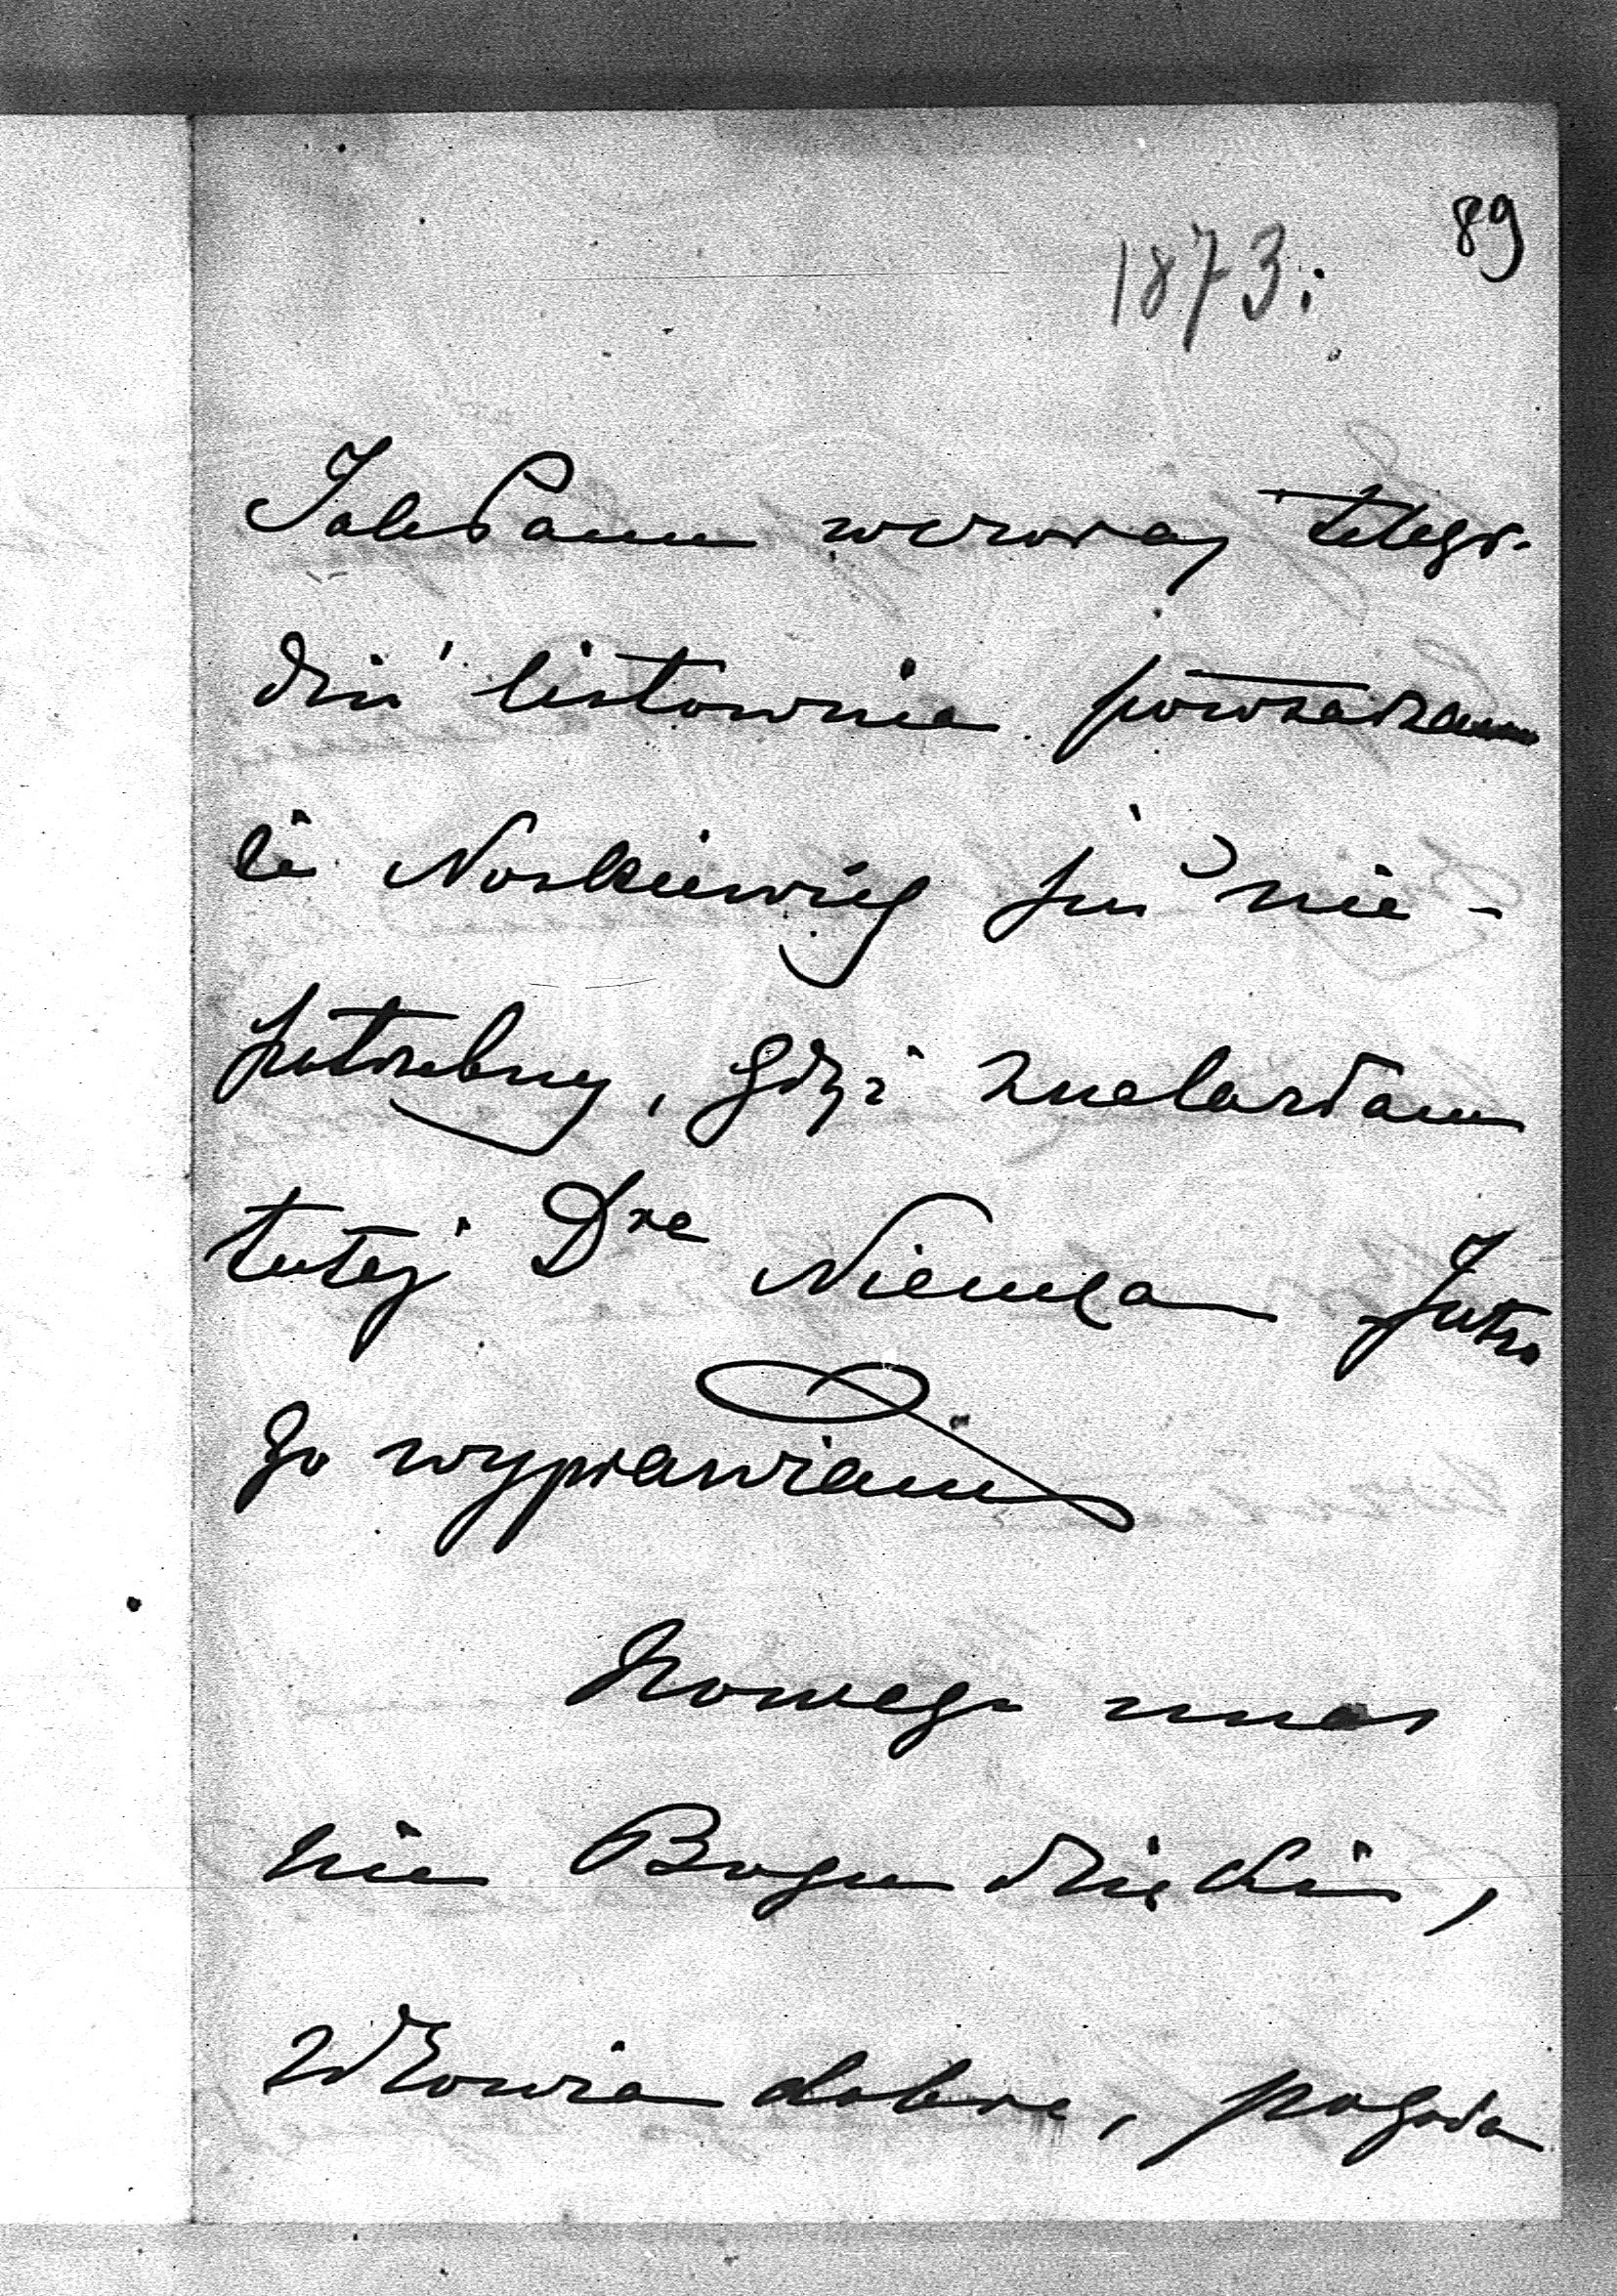 89
1873.
Jak Panu wczoraj telegr.
dziś listownie powtarzam
że Noskiewicz już nie-
potrzebny, gdyż znalazłam
tutej Dra Niemca Jutro
go wyprawiam
Nowego u nas
nic Bogu dzięki,
zdrowie dobre, pogoda